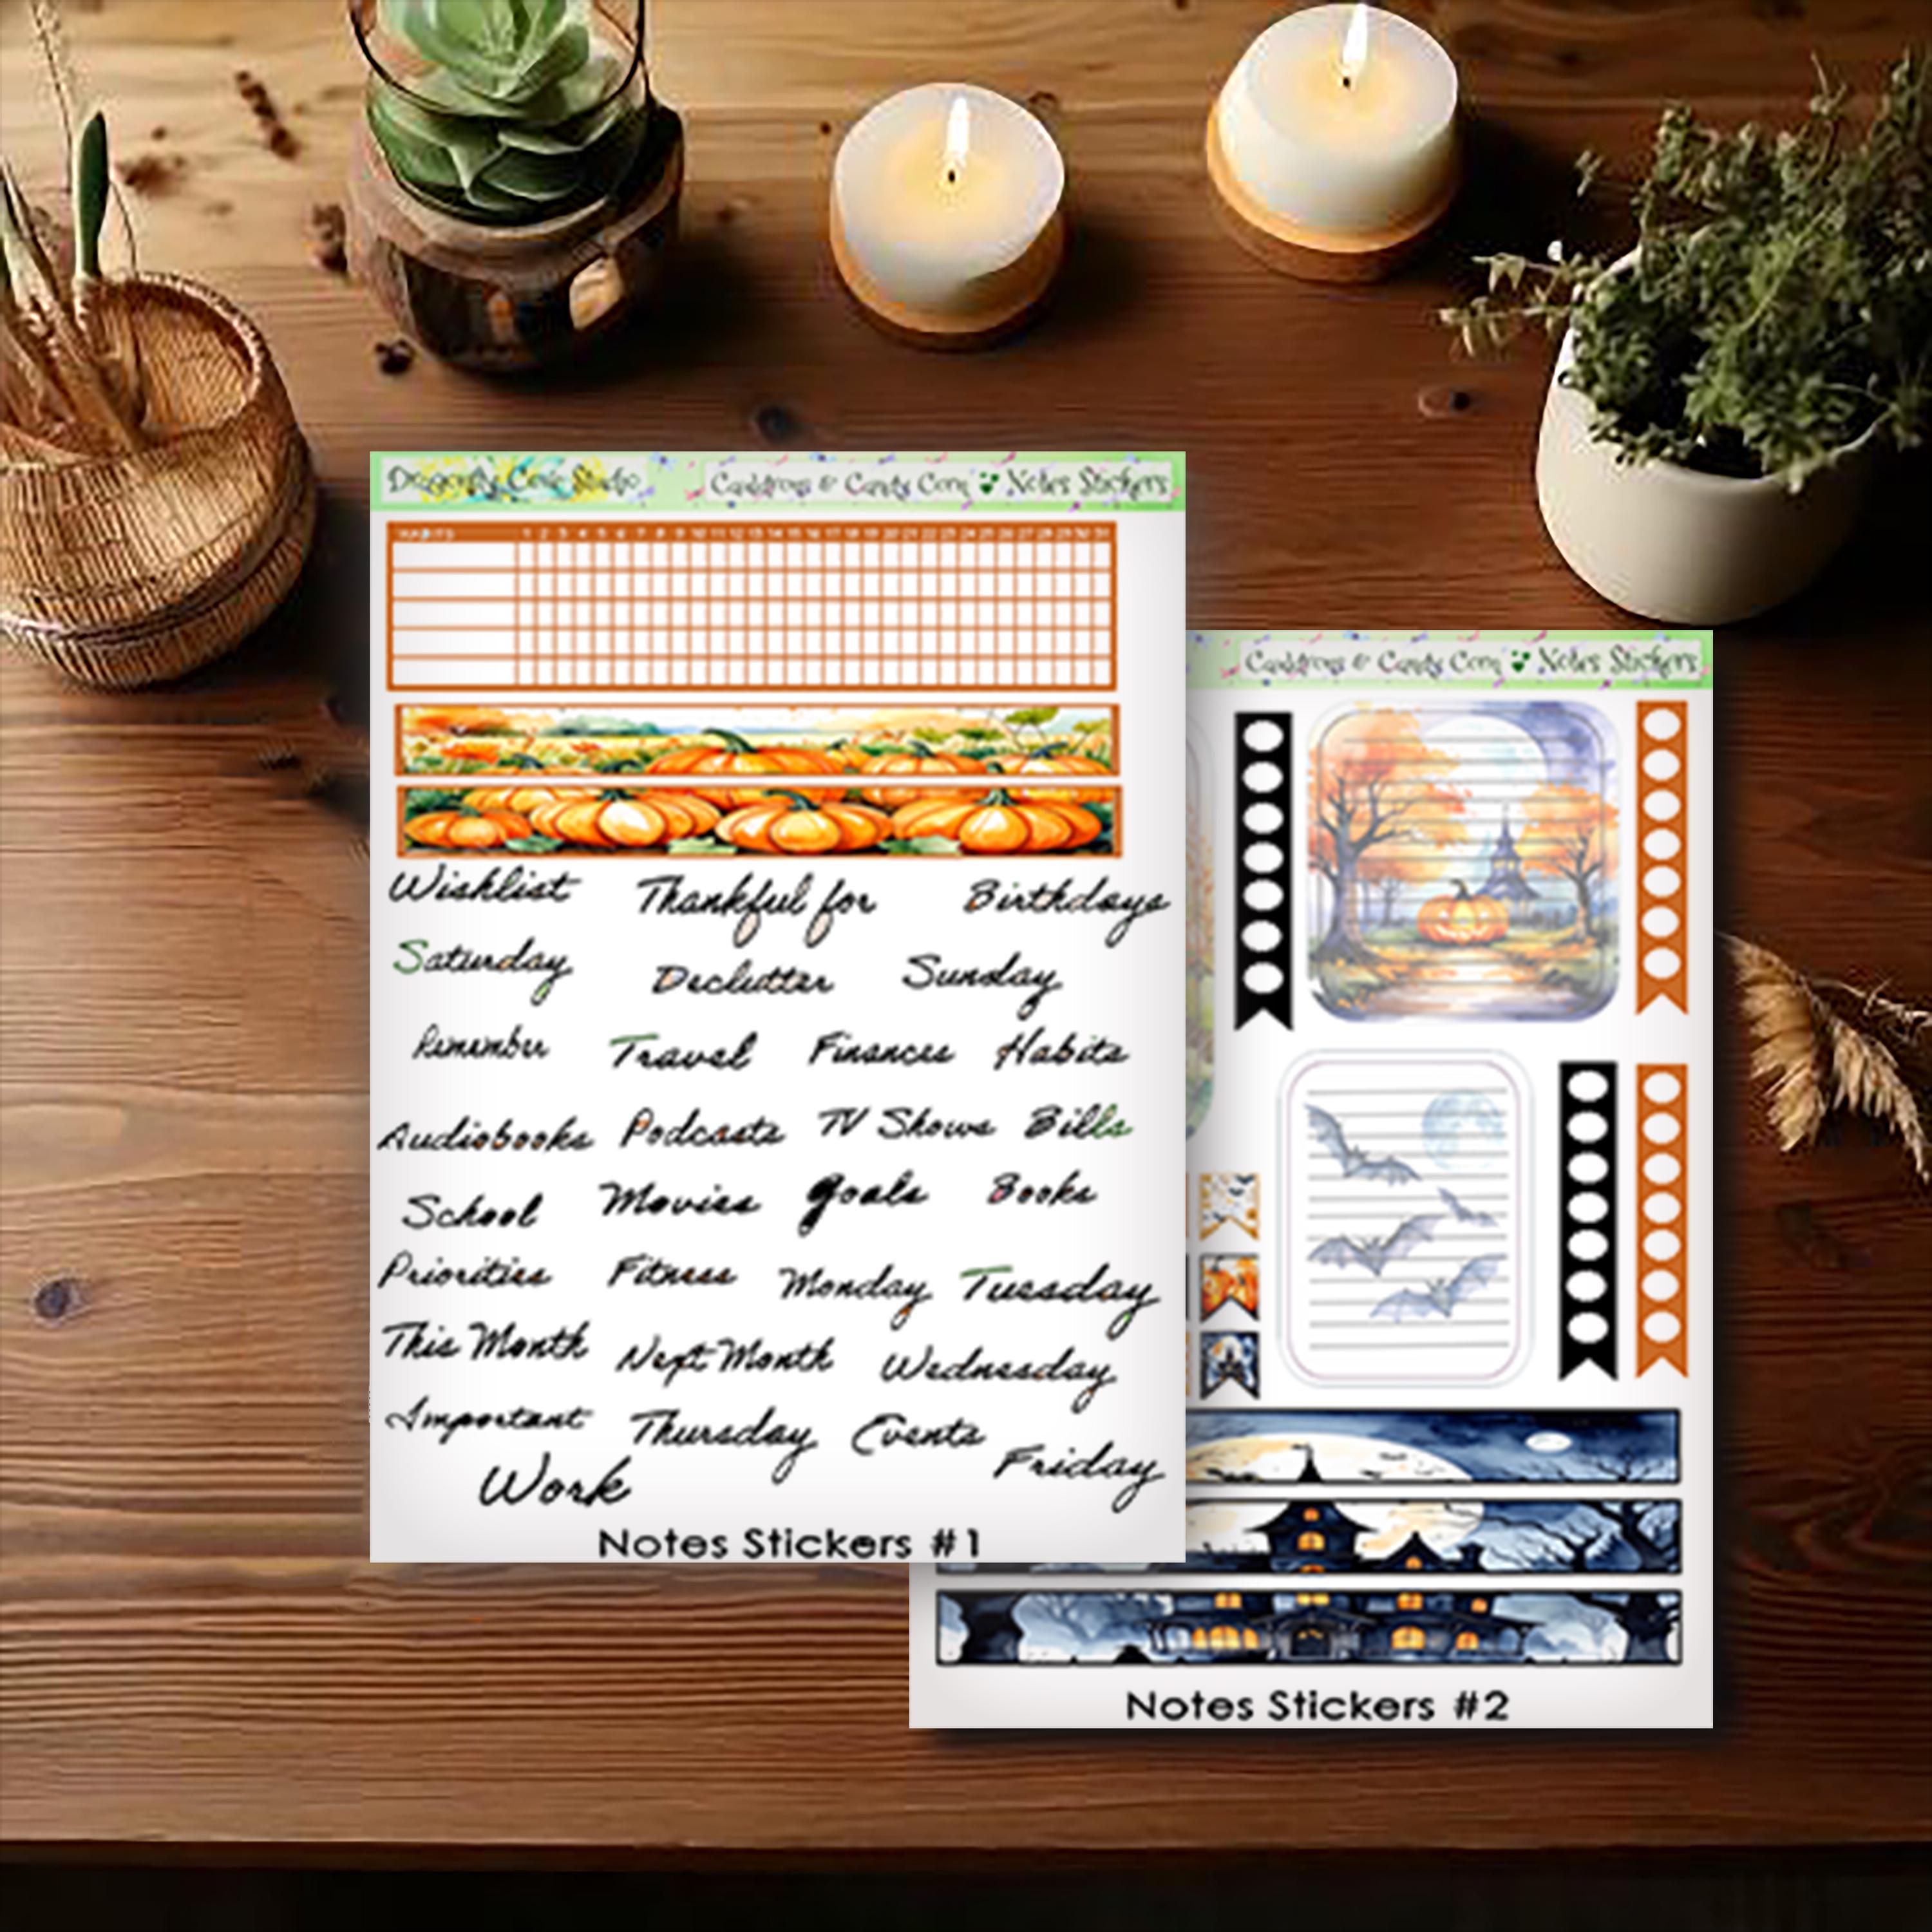 Dragonfly Cove Studio
Cauldrons & Candy Corn Notes Stickers
HABITS 1 2 3 4 5 6 7 8 9 10 11 12 13 14 15 16 17 18 19 20 21 22 23 24 25 26 27 28 29 30 31
Wishlist Thankful for Birthdays
Saturday Declutter Sunday
Remember Travel Finances Habits
Audiobooks Podcasts TV Shows Bills
School Movies Goals Books
Priorities Fitness Monday Tuesday
This Month Next Month Wednesday
Important Thursday Events Friday
Work
Notes Stickers #1
Cauldrons & Candy Corn Notes Stickers
Notes Stickers #2